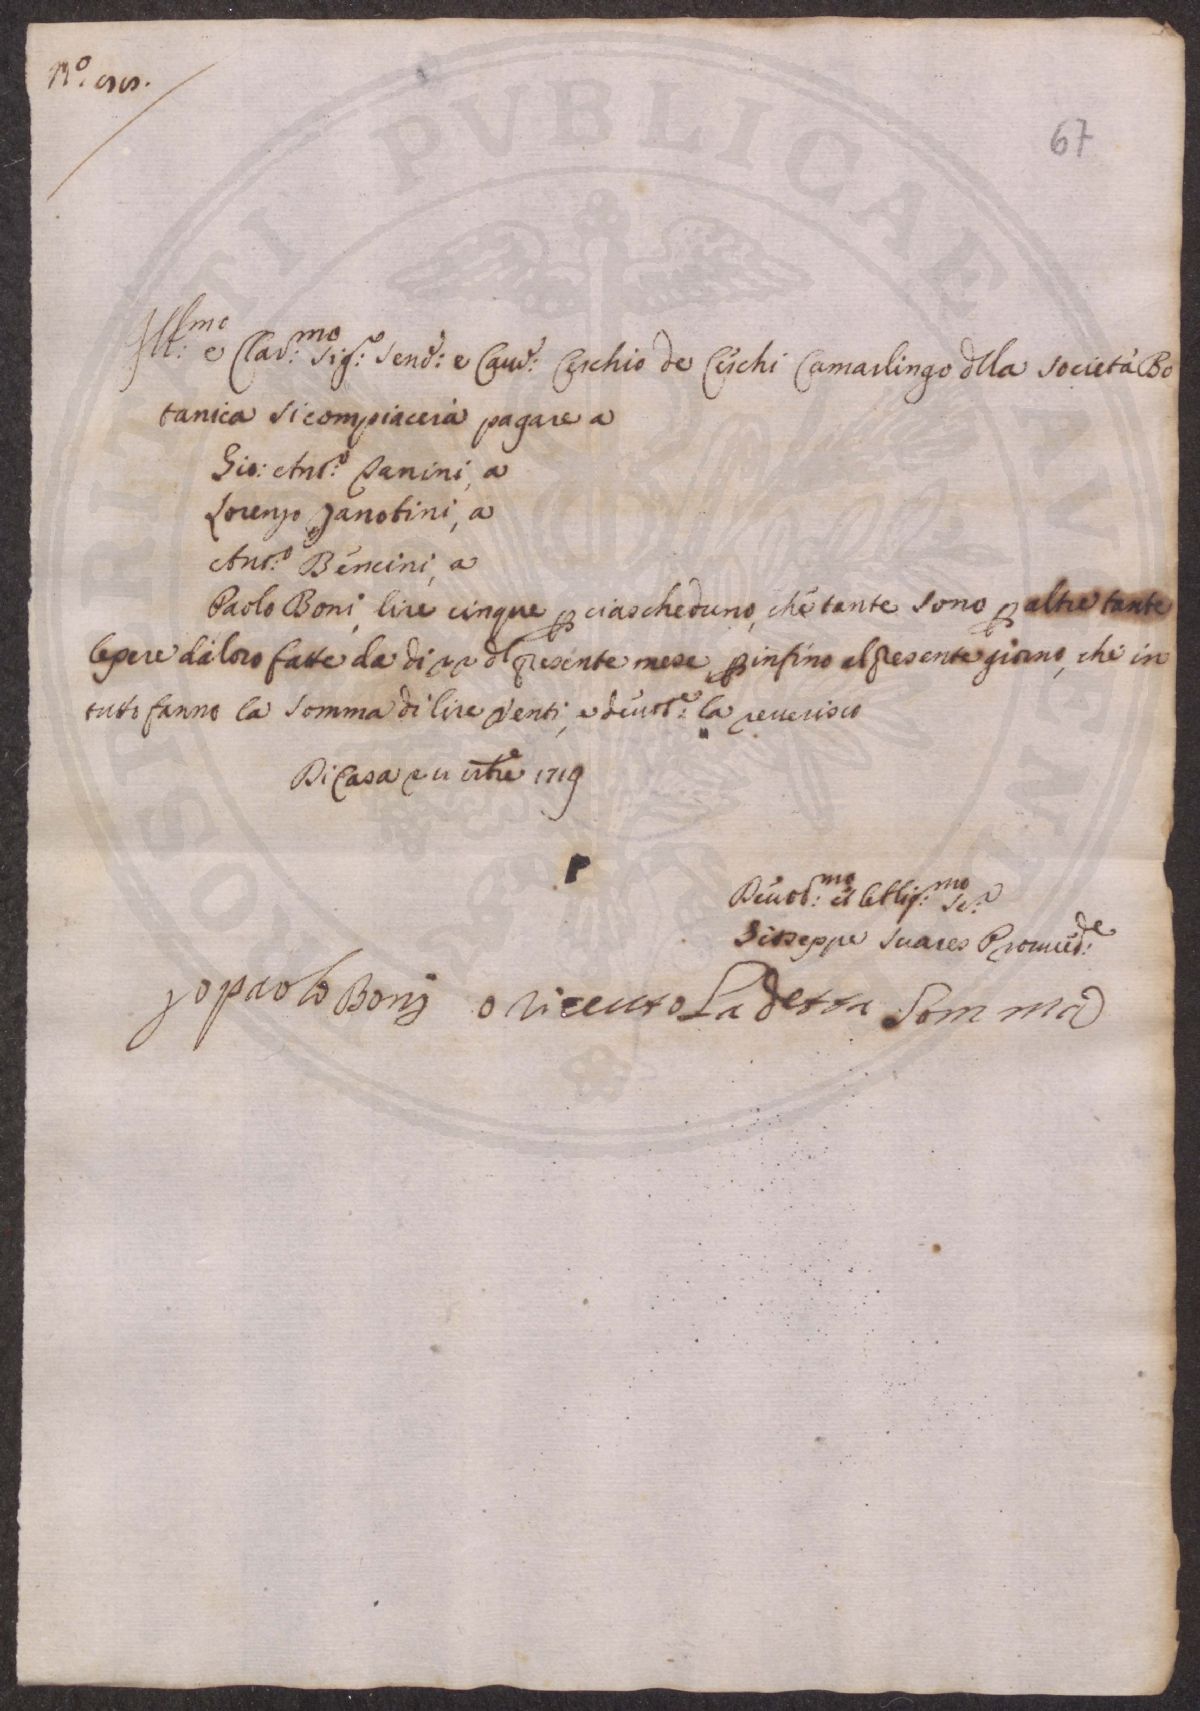 N.o
67
Ill:mo e Clar:mo Sig:e Send:e e Cau:e Cerchio de Cerchi Camarlingo dlla Società Bo
tanica si compiacerà pagare a
Gio: Ant:o Vanini, a
Lorenzo Zanobini, a
Ant:o Bencini, a
Paolo Boni, lire cinque p ciascheduno, che tante sono p altre tante
lepere dà loro fatte da di dl presente mese, p infino al presente giorno, che in
tutto fanno la somma di lire venti, e deuot:e la reuerisco
Di Casa 1719
Deuot:mo et Obblig:mo Se:e
Giuseppe Suares Proued:de
Jo paolo Boni o riceuto La detta Somma
OSPITANTI PVBLICAE VTILITATI